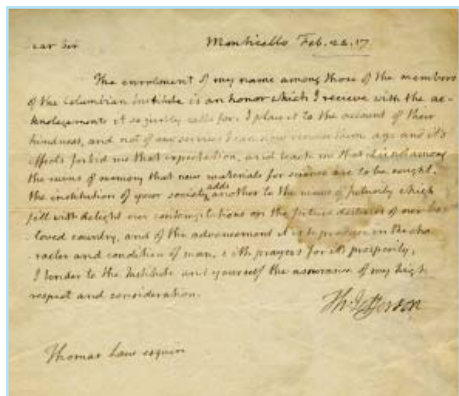 ear Sir Monticello Feb. 22. 17.
The enrolment of my name among those of the members
of the Columbian Institute is an honor which I recieve with the ac-
-knolegements it so justly calls for. I place it to the account of their
kindness, and not of any services I can now render them. age and it's
effects forbid me that expectation, and teach me that it is not among
the ruins of memory that new materials for science are to be sought.
the institution of your society adds another to the views of futurity which
fill with delight our contemplations on the future destinies of our be-
loved country, and of the advancement it is to produce in the cha-
-racter and condition of man. with prayers for it's prosperity,
I tender to the Institute and yourself the assurance of my high
respect and consideration.
Th: Jefferson
Thomas Law esquire